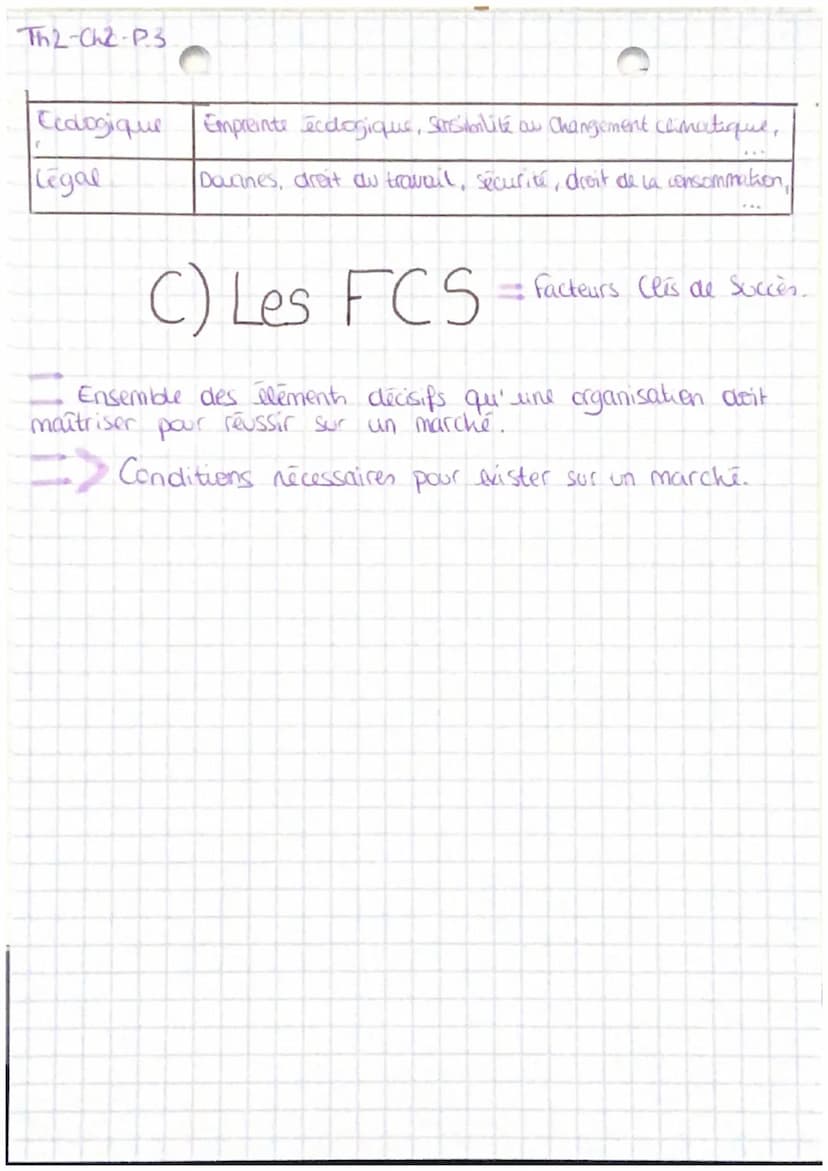 Th2-Ch2-P.3
Ecologique Empreinte écologique, Sensibilité au Changement climatique, ...
Légal Douanes, droit du travail, sécurité, droit de la consommation, ...
C) Les FCS = Facteurs Clés de Succès.
= Ensemble des éléments décisifs qu'une organisation doit
maîtriser pour réussir sur un marché.
=> Conditions nécessaires pour exister sur un marché.